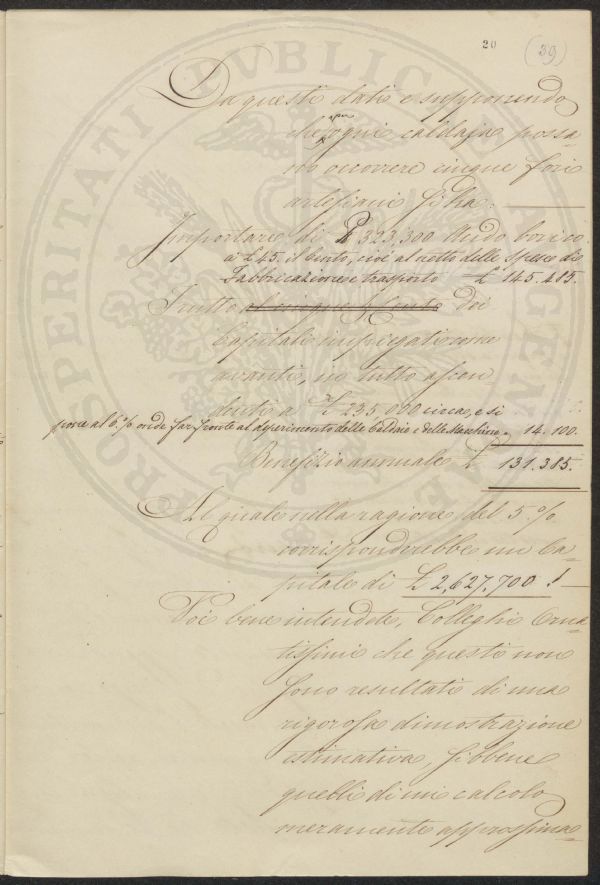 20 (39)
Da questi dati e supponendo
che per ogni caldaja possa-
no occorrere cinque fori
artesiani si ha:
Importare di ℔ 323,300 Acido borico
a £ 45. il Cento, cioè al netto delle Spese di
Fabbricazione e trasporto £ 145.485.
Frutto al cinque p Cento dei
Capitali impiegati come
avanti, in tutto ascen
denti a £ 235,000 circa, e si
pone al 6.% onde far fronte al deperimento delle Caldaie e delle Macchine. 14.100.
Benefizio annuale £ 131.385.
Al quale nella ragione del 5.%
corrisponderebbe un Ca-
pitale di £ 2,627,700!
Voi bene intendete, Colleghi Orna-
tissimi che questi non
sono resultati di una
rigorosa dimostrazione
estimativa, sibbene
quelli di un calcolo
meramente approssima-
PROSPERITATI PVBLICAE AVGENDAE